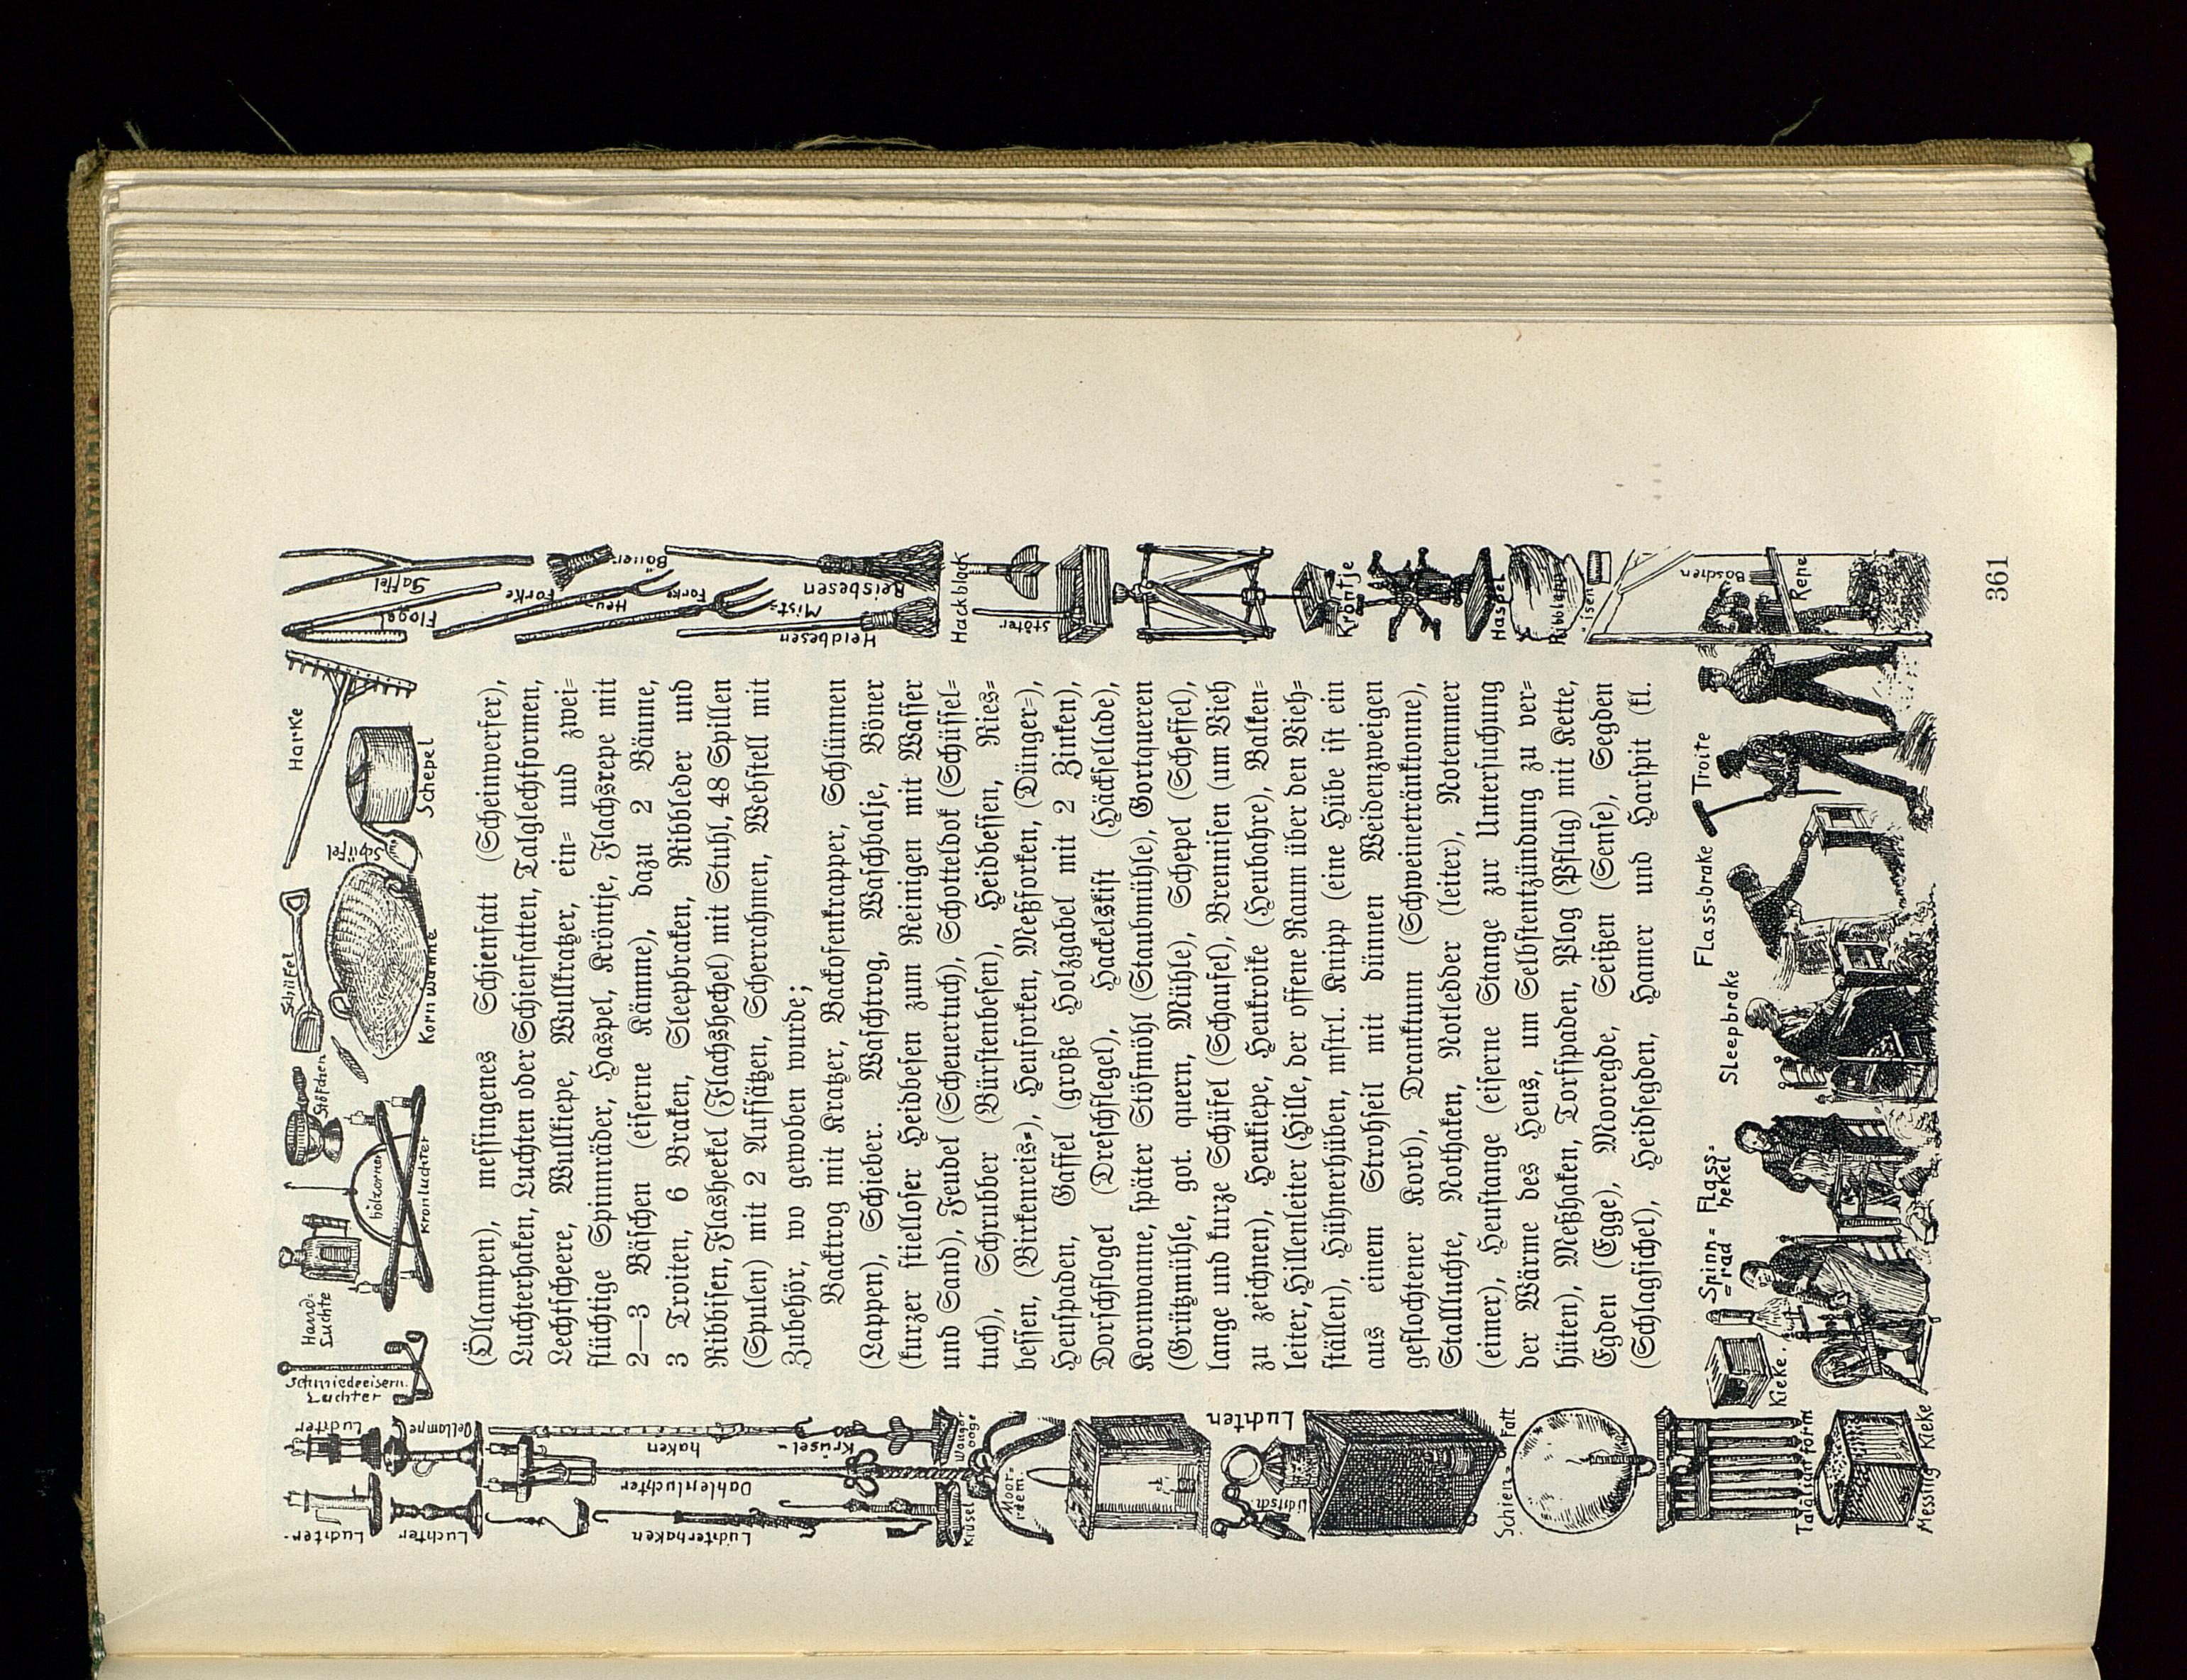 Schmiedeeisern.
Luchter
Hand=
Luchte
hölzerner
Kronluchter
Stöfchen
Schüfel
Kornwanne
Schüfel
Schepel
Harke
Luchter
Luchter
Oellampe
Luchter
Krüsel=
haken
Dahlenluchter
Luchterhaken
Krüsel
Wanger
ooge
Moor-
riem
Luchten
Schien=Fatt
Talglichtform
Messing Kieke
(Öllampen), messingenes Schienfatt (Scheinwerfer),
Luchterhaken, Luchten oder Schienfatten, Talglechtformen,
Lechtscheere, Wullkiepe, Wullkratzer, ein= und zwei=
flüchtige Spinnräder, Haspel, Kröntje, Flachsrepe mit
2—3 Bäschen (eiserne Kämme), dazu 2 Bäume,
3 Troiten, 6 Braken, Sleepbraken, Ribbleder und
Ribbisen, Flasheekel (Flachshechel) mit Stuhl, 48 Spillen
(Spulen) mit 2 Aufsätzen, Scherrahmen, Webstell mit
Zubehör, wo gewoben wurde;
Backtrog mit Kratzer, Backofenkrapper, Schlünnen
(Lappen), Schieber. Waschtrog, Waschbalje, Böner
(kurzer stielloser Heidbesen zum Reinigen mit Wasser
und Sand), Feudel (Scheuertuch), Schotteldok (Schüssel=
tuch), Schrubber (Bürstenbesen), Heidbessen, Ries=
bessen, (Birkenreis=), Heuforken, Meßforken, (Dünger=),
Heuspaden, Gaffel (große Holzgabel mit 2 Zinken),
Dorschflogel (Dreschflegel), Hackelskist (Häcksellade),
Kornwanne, später Stöfmöhl (Staubmühle), Gortqueren
(Grützmühle, got. quern, Mühle), Schepel (Scheffel),
lange und kurze Schüfel (Schaufel), Brennisen (um Vieh
zu zeichnen), Heukiepe, Heukroike (Heubahre), Balken=
leiter, Hillenleiter (Hille, der offene Raum über den Vieh=
ställen), Hühnerhüben, mstrl. Knipp (eine Hübe ist ein
aus einem Strohseil mit dünnen Weidenzweigen
geflochtener Korb), Dranktunn (Schweinetränktonne),
Stallluchte, Nothaken, Notledder (leiter), Notemmer
(eimer), Heustange (eiserne Stange zur Untersuchung
der Wärme des Heus, um Selbstentzündung zu ver=
hüten), Meßhaken, Torfspaden, Plog (Pflug) mit Kette,
Egden (Egge), Mooregde, Seißen (Sense), Segden
(Schlagsichel), Heidsegden, Hamer und Harspit (kl.
Flogel
Gaffel
Heu
Forke
Böner
Mist=
Forke
Heidbesen
Reisbesen
Hackblock
Stöter
Kröntje
Haspel
Ribblapp
=isen
Böschen
Repe
Kieke.
Spinn=
=rad
Flass=
hekel
Sleepbrake
Flass=brake
Troite
361